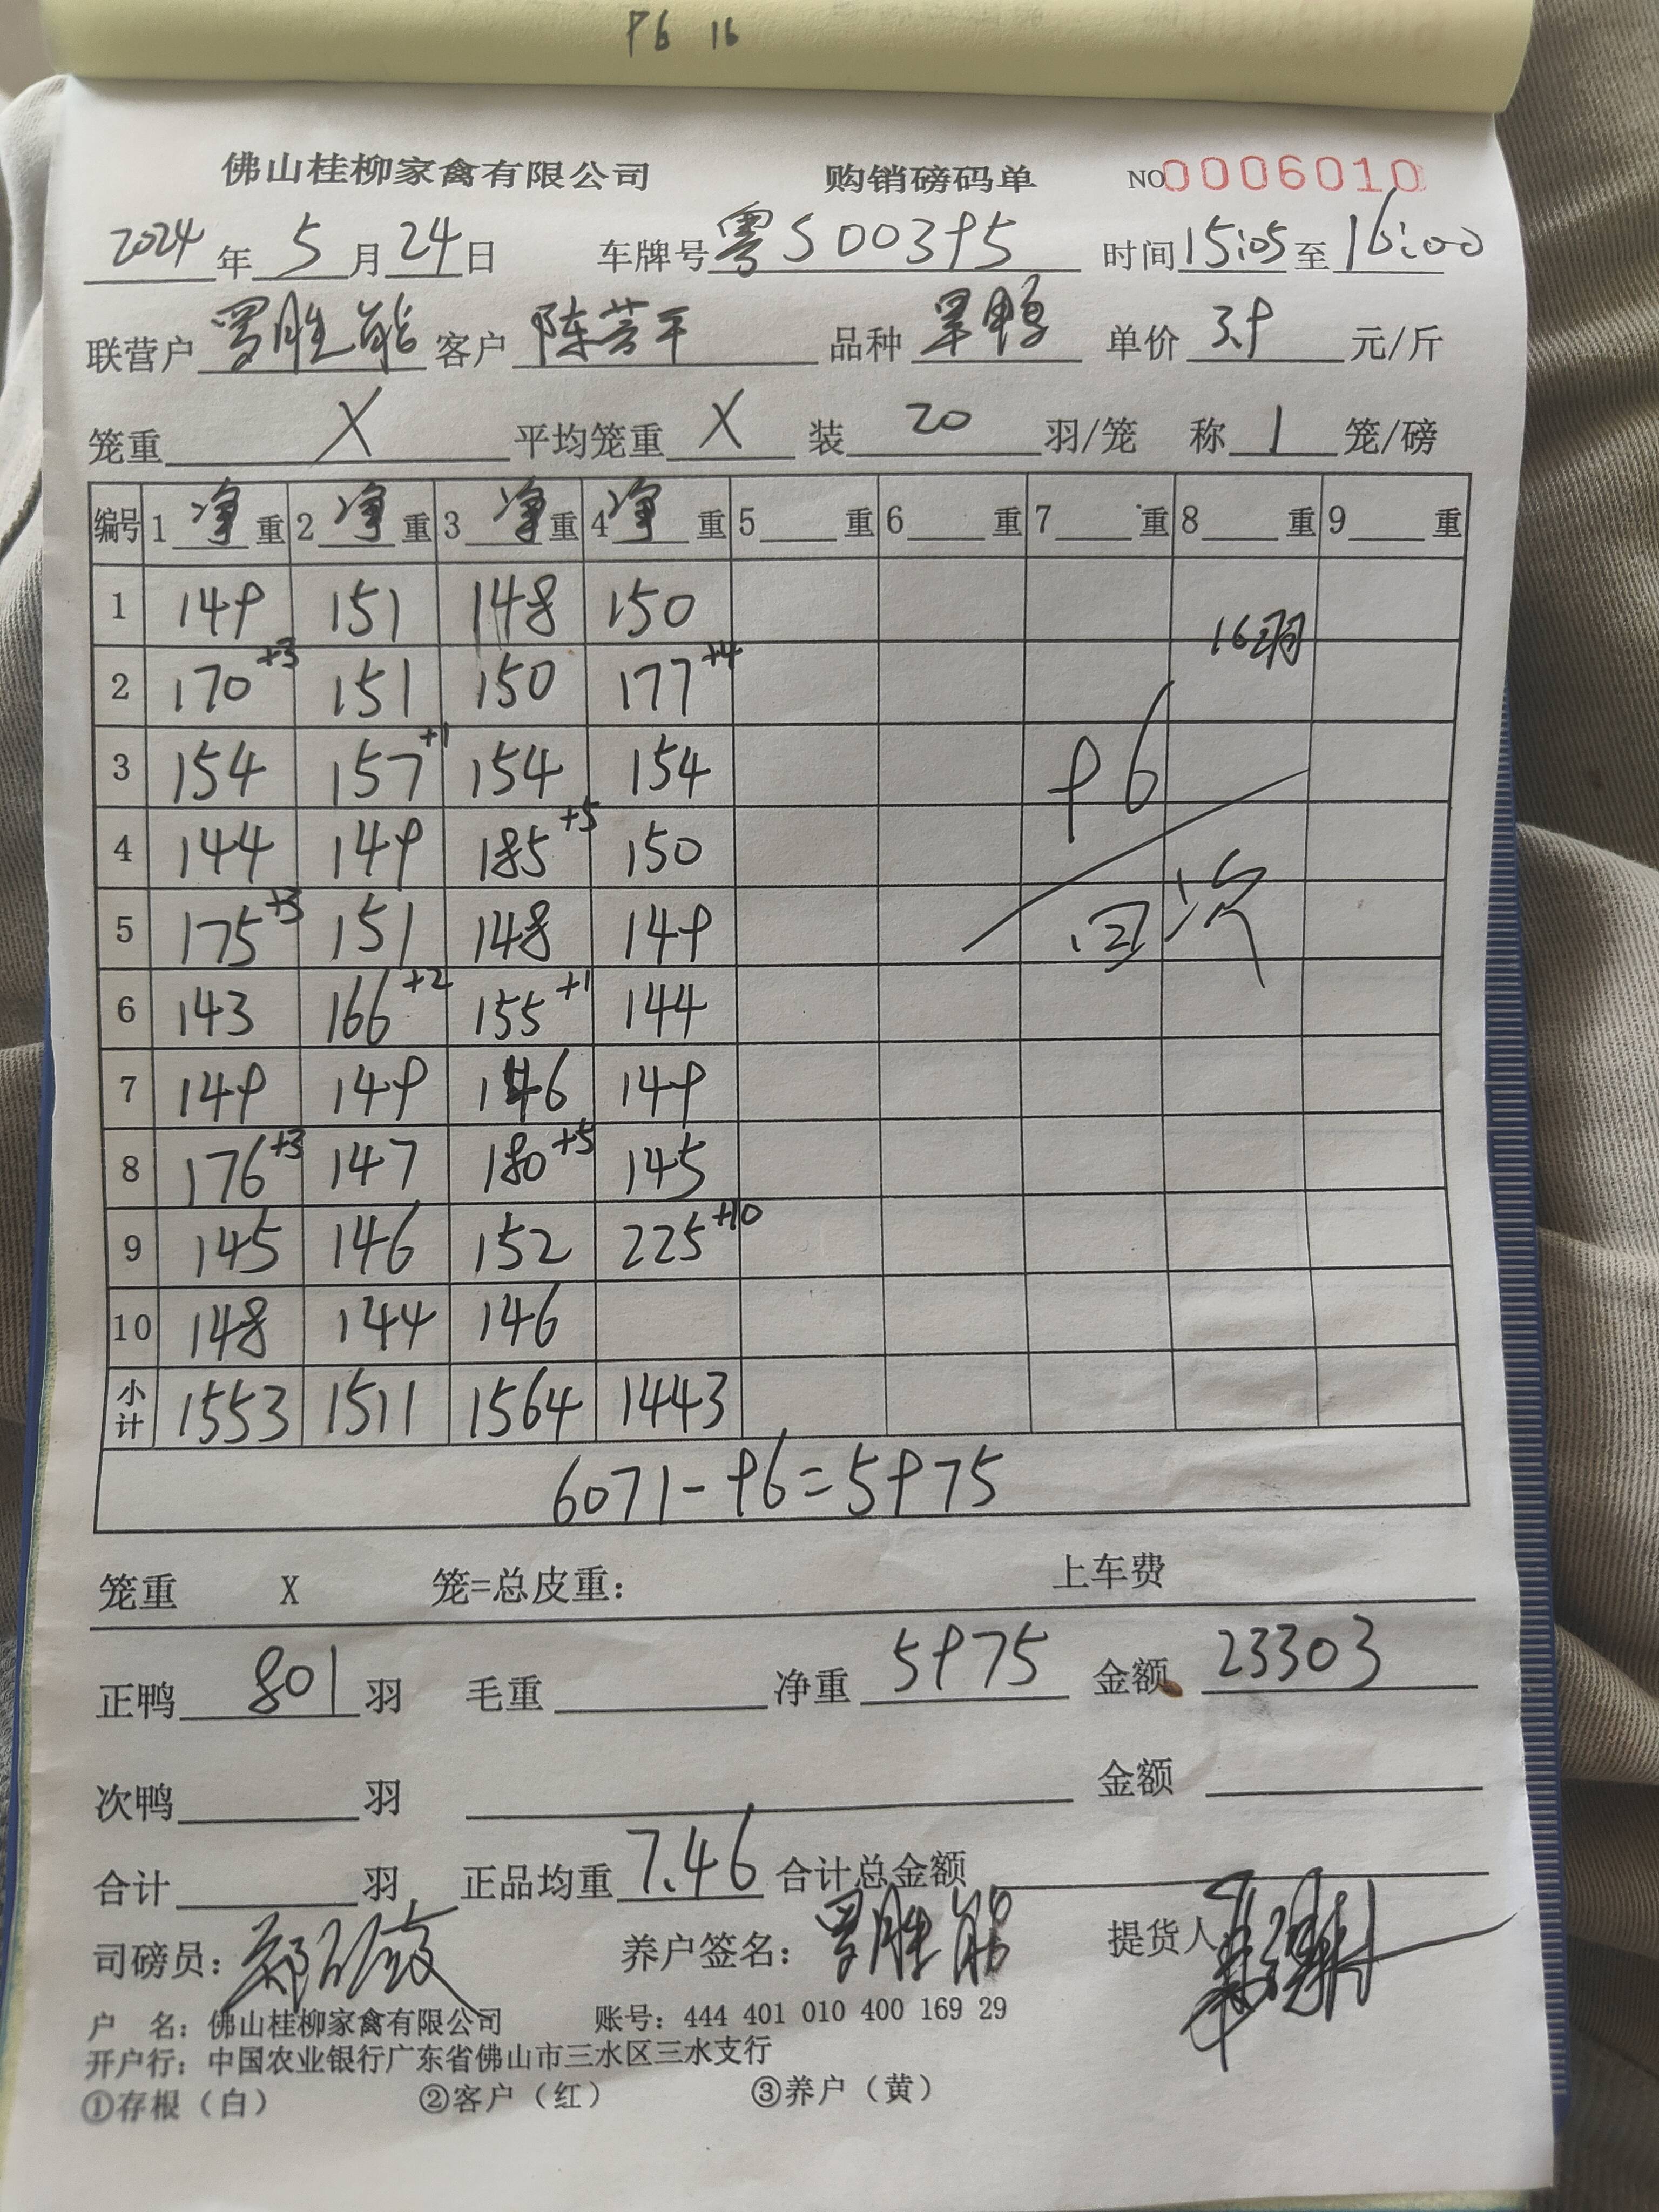 96 16
佛山桂柳家禽有限公司 购销磅码单 NO 0006010
2024 年 5 月 24 日 车牌号 粤S00395 时间 15:05 至 16:00
联营户 罗胜能 客户 陈芸平 品种 旱鸭 单价 3.9 元/斤
笼重 X 平均笼重 X 装 20 羽/笼 称 1 笼/磅
编号 1 净 重 2 净 重 3 净 重 4 净 重 5 重 6 重 7 重 8 重 9 重
1 149 151 148 150
16羽
2 170+3 151 150 177+4
3 154 157+1 154 154 96
4 144 149 185+5 150
5 175+3 151 148 149 回次
6 143 166+2 155+1 144
7 149 149 146 149
8 176+3 147 180+5 145
9 145 146 152 225+10
10 148 144 146
小计 1553 1511 1564 1443
6071-96=5975
笼重 X 笼=总皮重: 上车费
正鸭 801 羽 毛重 净重 5975 金额 23303
次鸭 羽 金额
合计 羽 正品均重 7.46 合计总金额
司磅员: 养户签名: 罗胜能 提货人
户 名: 佛山桂柳家禽有限公司 账号: 444 401 010 400 169 29
开户行: 中国农业银行广东省佛山市三水区三水支行
①存根（白） ②客户（红） ③养户（黄）